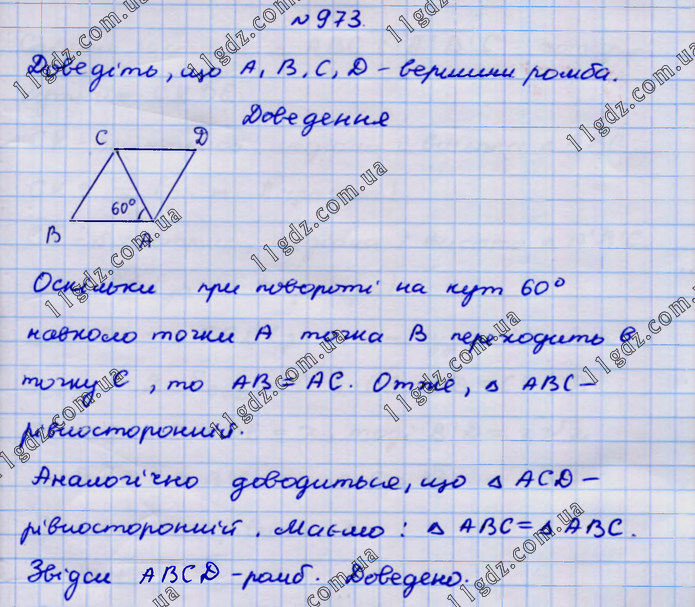 № 973.
Доведіть, що A, B, C, D - вершини ромба.
Доведення
C D
60°
B A
Оскільки при повороті на кут 60°
навколо точки A точка B переходить в
точку C, то AB = AC. Отже, △ ABC -
рівносторонній.
Аналогічно доводиться, що △ ACD -
рівносторонній. Маємо: △ ABC = △ ABC.
Звідси ABCD - ромб. Доведено.
11gdz.com.ua
11gdz.com.ua
11gdz.com.ua
11gdz.com.ua
11gdz.com.ua
11gdz.com.ua
11gdz.com.ua
11gdz.com.ua
11gdz.com.ua
11gdz.com.ua
11gdz.com.ua
11gdz.com.ua